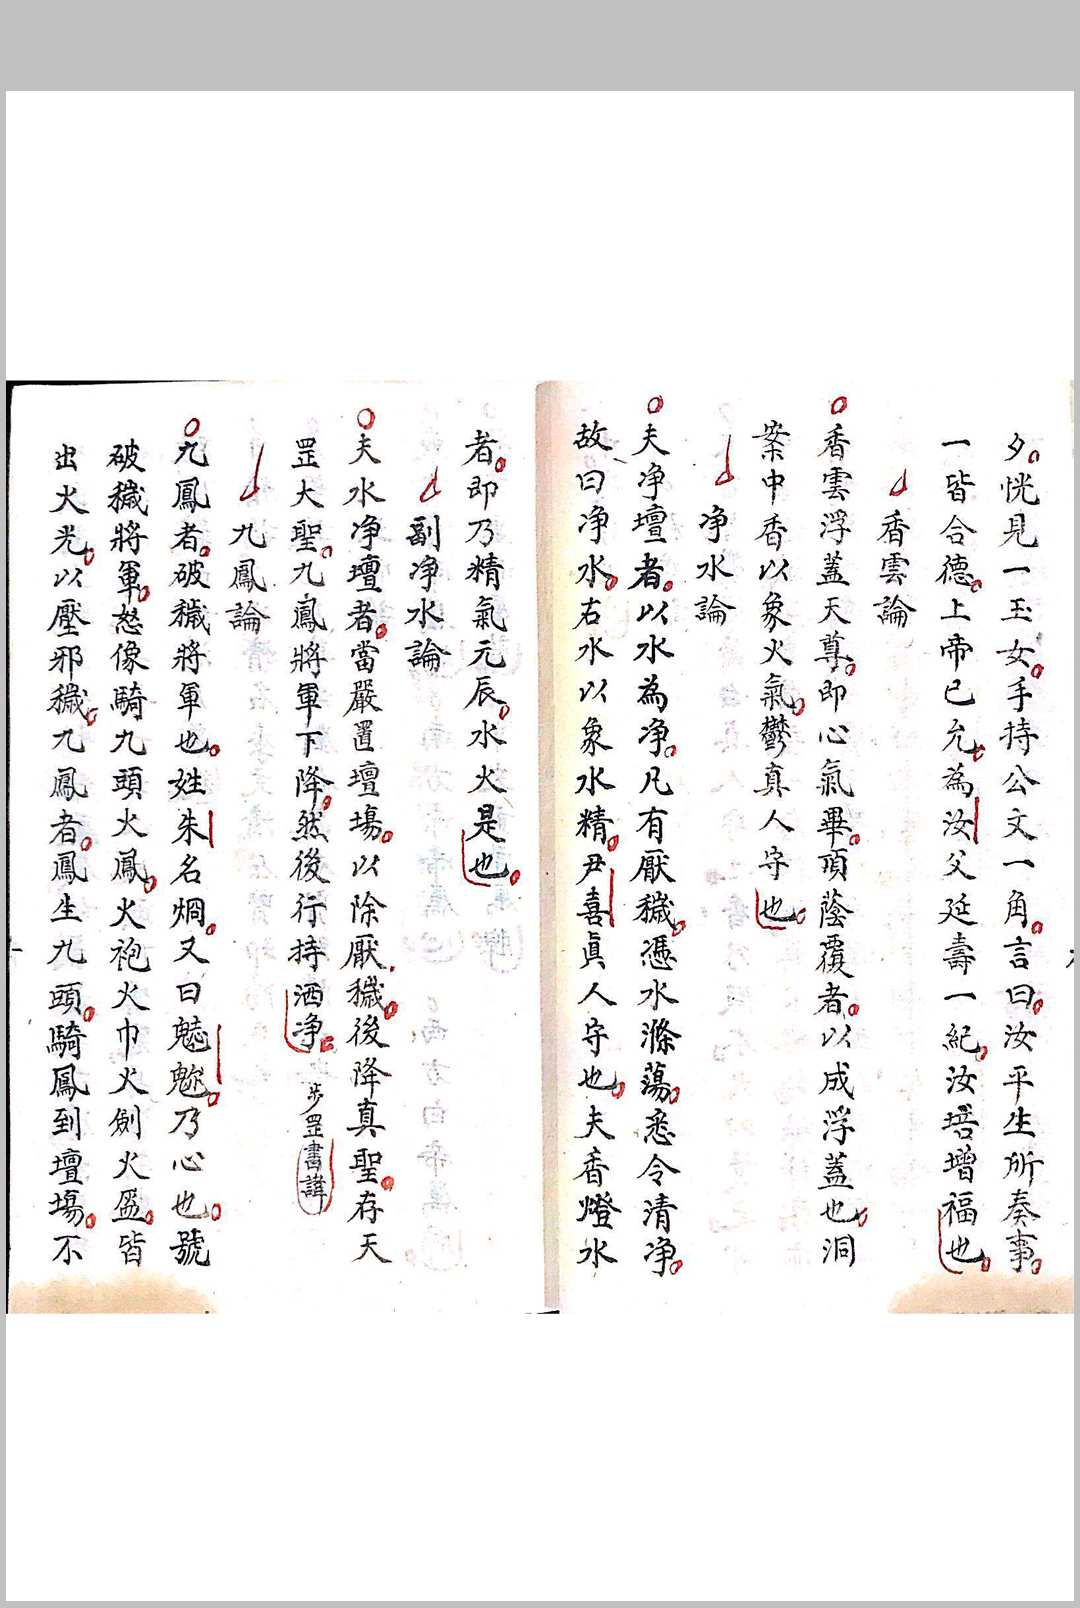 夕恍見一玉女手持公文一角言曰汝平生所奏事
一皆合德上帝已允為汝父延壽一紀汝培增福也
香雲論
香雲浮蓋天尊即心氣畢頂蔭覆者以成浮蓋也洞
案中香以象火氣鬱真人守也
净水論
夫净壇者以水為净凡有厭穢憑水滌蕩悉令清净
故曰净水右水以象水精尹喜眞人守也夫香燈水
者即乃精氣元辰水火是也
副净水論
夫水净壇者當嚴置壇場以除厭穢後降真聖存天
罡大聖九鳳將軍下降然後行持洒净 步罡書諱
九鳳論
九鳳者破穢將軍也姓朱名烱又曰乃心也號
破穢將軍怒像騎九頭火鳳火袍火巾火劍火盔皆
出火光以壓邪穢九鳳者鳳生九頭騎鳳到壇場不